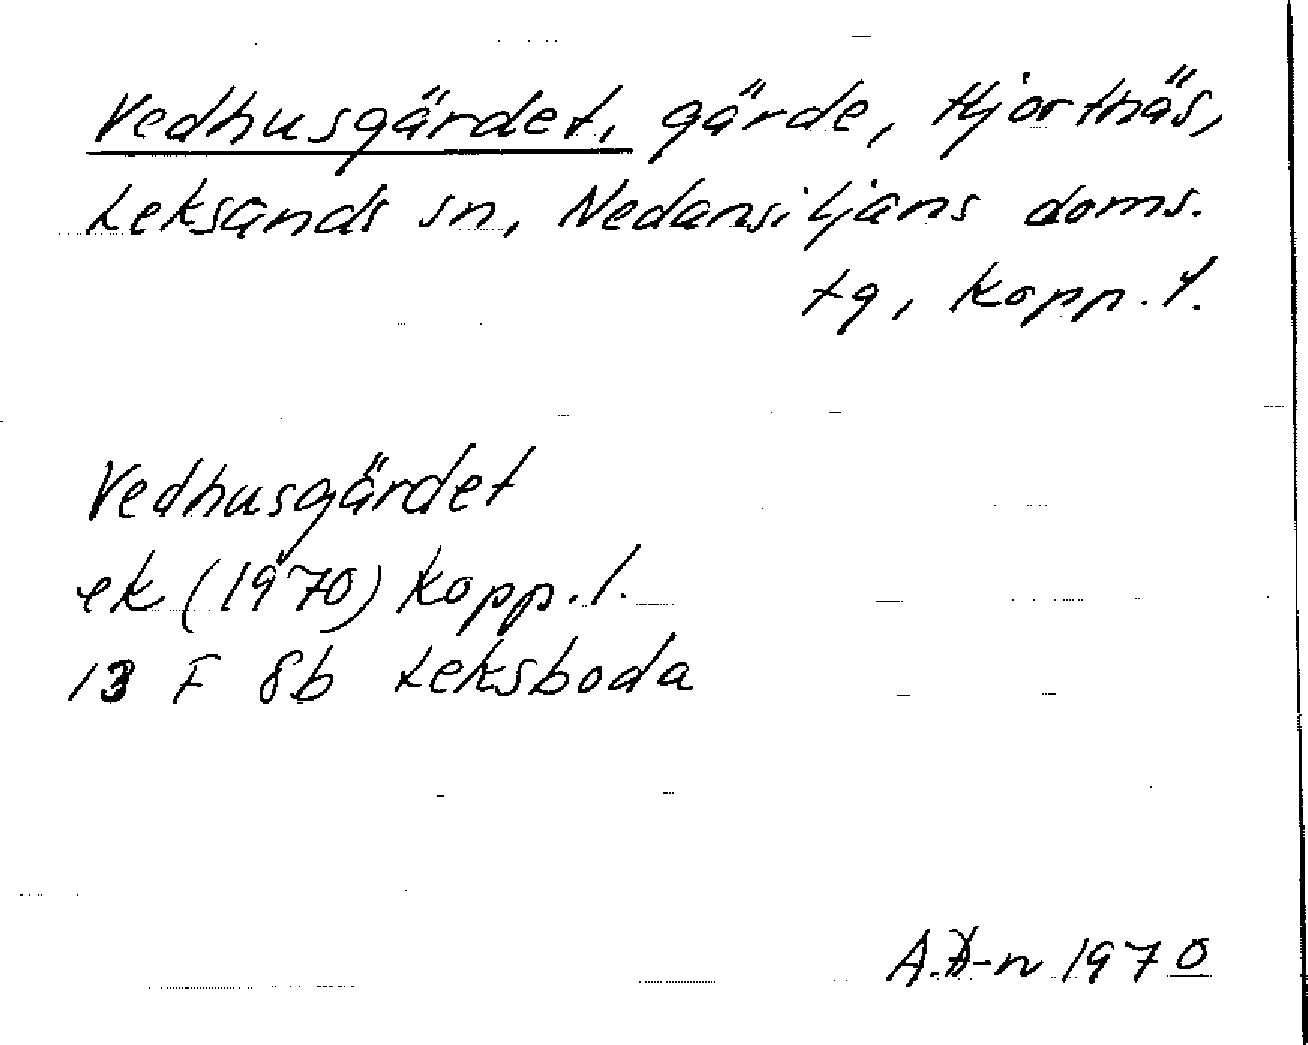 Vedhusgärdet, gärde, Hjortnäs,
Leksands sn, Nedansiljans doms.
tg, Kopp. l.
Vedhusgärdet
ek (1970) Kopp. l.
13 F 8b Leksboda
A.D-n 1970